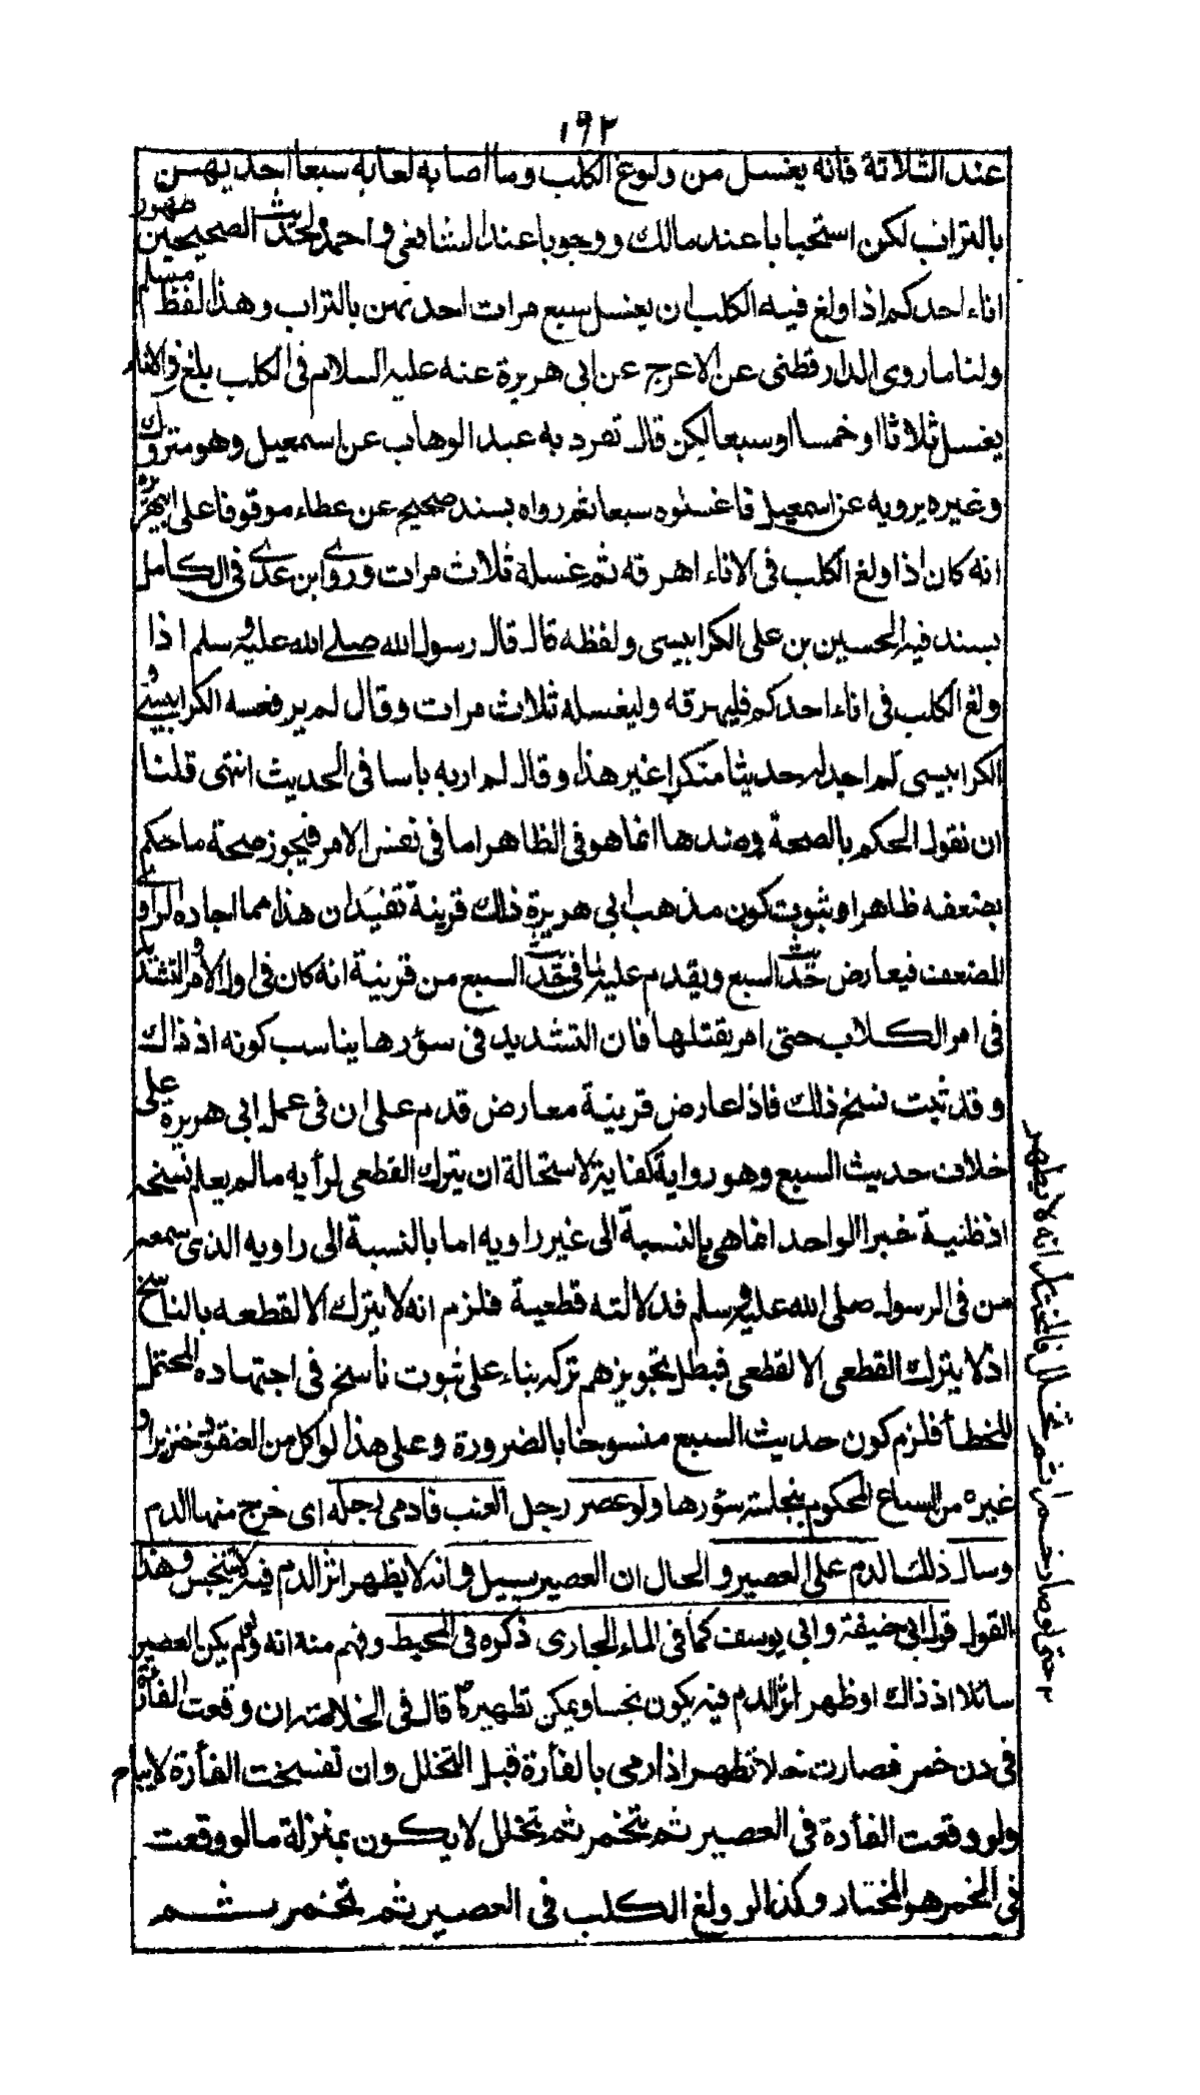 ١٩٢
عند الثلاثة فانه يغسل من ولوغ الكلب وما اصابه لعابه سبعا احديهن
بالتراب لكن استحبابا عند مالك ووجوبا عند الشافعى واحمد لحديث الصحيحين طهور
اناء احدكم اذا ولغ فيه الكلب ان يغسل سبع مرات احديهن بالتراب وهذا لفظ مسلم
ولنا ما روى الدارقطنى عن الاعرج عن ابى هريرة عنه عليه السلام فى الكلب يلغ فى الاناء
يغسل ثلاثا او خمسا او سبعا لكن قال تفرد به عبد الوهاب عن اسمعيل وهو متروك
وغيره يرويه عن اسمعيل فاغسلوه سبعا ثم رواه بسند صحيح عن عطاء موقوفا على ابى هريرة
انه كان اذا ولغ الكلب فى الاناء اهرقه ثم غسله ثلاث مرات وروى ابن عدى فى الكامل
بسند فيه الحسين بن على الكرابيسى ولفظه قال قال رسول الله صلى الله عليه وسلم اذا
ولغ الكلب فى اناء احدكم فليهرقه وليغسله ثلاث مرات وقال لم يرفعه الكرابيسى و
الكرابيسى لم اجد له حديثا منكرا غير هذا وقال لم ار به باسا فى الحديث انتهى قلنا
ان نقول الحكم بالصحة وضدها انما هو فى الظاهر اما فى نفس الامر فيجوز صحة ما حكم
بضعفه ظاهرا وثبوت كون مذهب ابى هريرة ذلك قرينة تفيد ان هذا مما اجاده الراوى
المضعف فيعارض حديث السبع ويقدم عليه لما فى حديث السبع من قرينة انه كان فى اول الامر التشديد
فى امر الكلاب حتى امر بقتلها فان التشديد فى سؤرها يناسب كونه اذ ذاك
وقد ثبت نسخ ذلك فاذا عارض قرينة معارض قدم على ان فى عمل ابى هريرة على
خلاف حديث السبع وهو رواية كفاية لاستحالة ان يترك القطعى لرأيه ما لم يعلم نسخه
اذ ظنية خبر الواحد انما هى بالنسبة الى غير راويه اما بالنسبة الى راويه الذى سمعه
من فى الرسول صلى الله عليه وسلم فدلالته قطعية فلزم انه لا يترك الا لقطعه بالناسخ
اذ لا يترك القطعى الا لقطعى فبطل تجويزهم تركه بناء على ثبوت ناسخ فى اجتهاده المحتمل
للخطأ فلزم كون حديث السبع منسوخا بالضرورة وعلى هذا لو اكل من العنقود خنزير او
غيره من السباع المحكوم بنجاسة سؤرها ولو عصر رجل العنب فادمى رجله اى خرج منها الدم
وسال ذلك الدم على العصير والحال ان العصير يسيل وانه لا يظهر اثر الدم فيه لا يتنجس وهذا
القول قول ابى حنيفة وابى يوسف كما فى الماء الجارى ذكره فى المحيط وفهم منه انه لو لم يكن العصير
سائلا اذ ذاك او ظهر اثر الدم فيه يكون نجسا ويمكن تطهيره قال فى الخلاصة ان وقعت الفأرة
فى دن خمر فصارت خلا تطهر اذا رمى بالفأرة قبل التخلل وان تفسخت الفأرة لا يباح
ولو وقعت الفأرة فى العصير ثم تخمر ثم تخلل لا يكون بمنزلة ما لو وقعت
فى الخمر هو المختار وكذا لو ولغ الكلب فى العصير ثم تخمر ثم
حتى لو صار خمرا ثم تخلل فالمختار انه لا يطهر